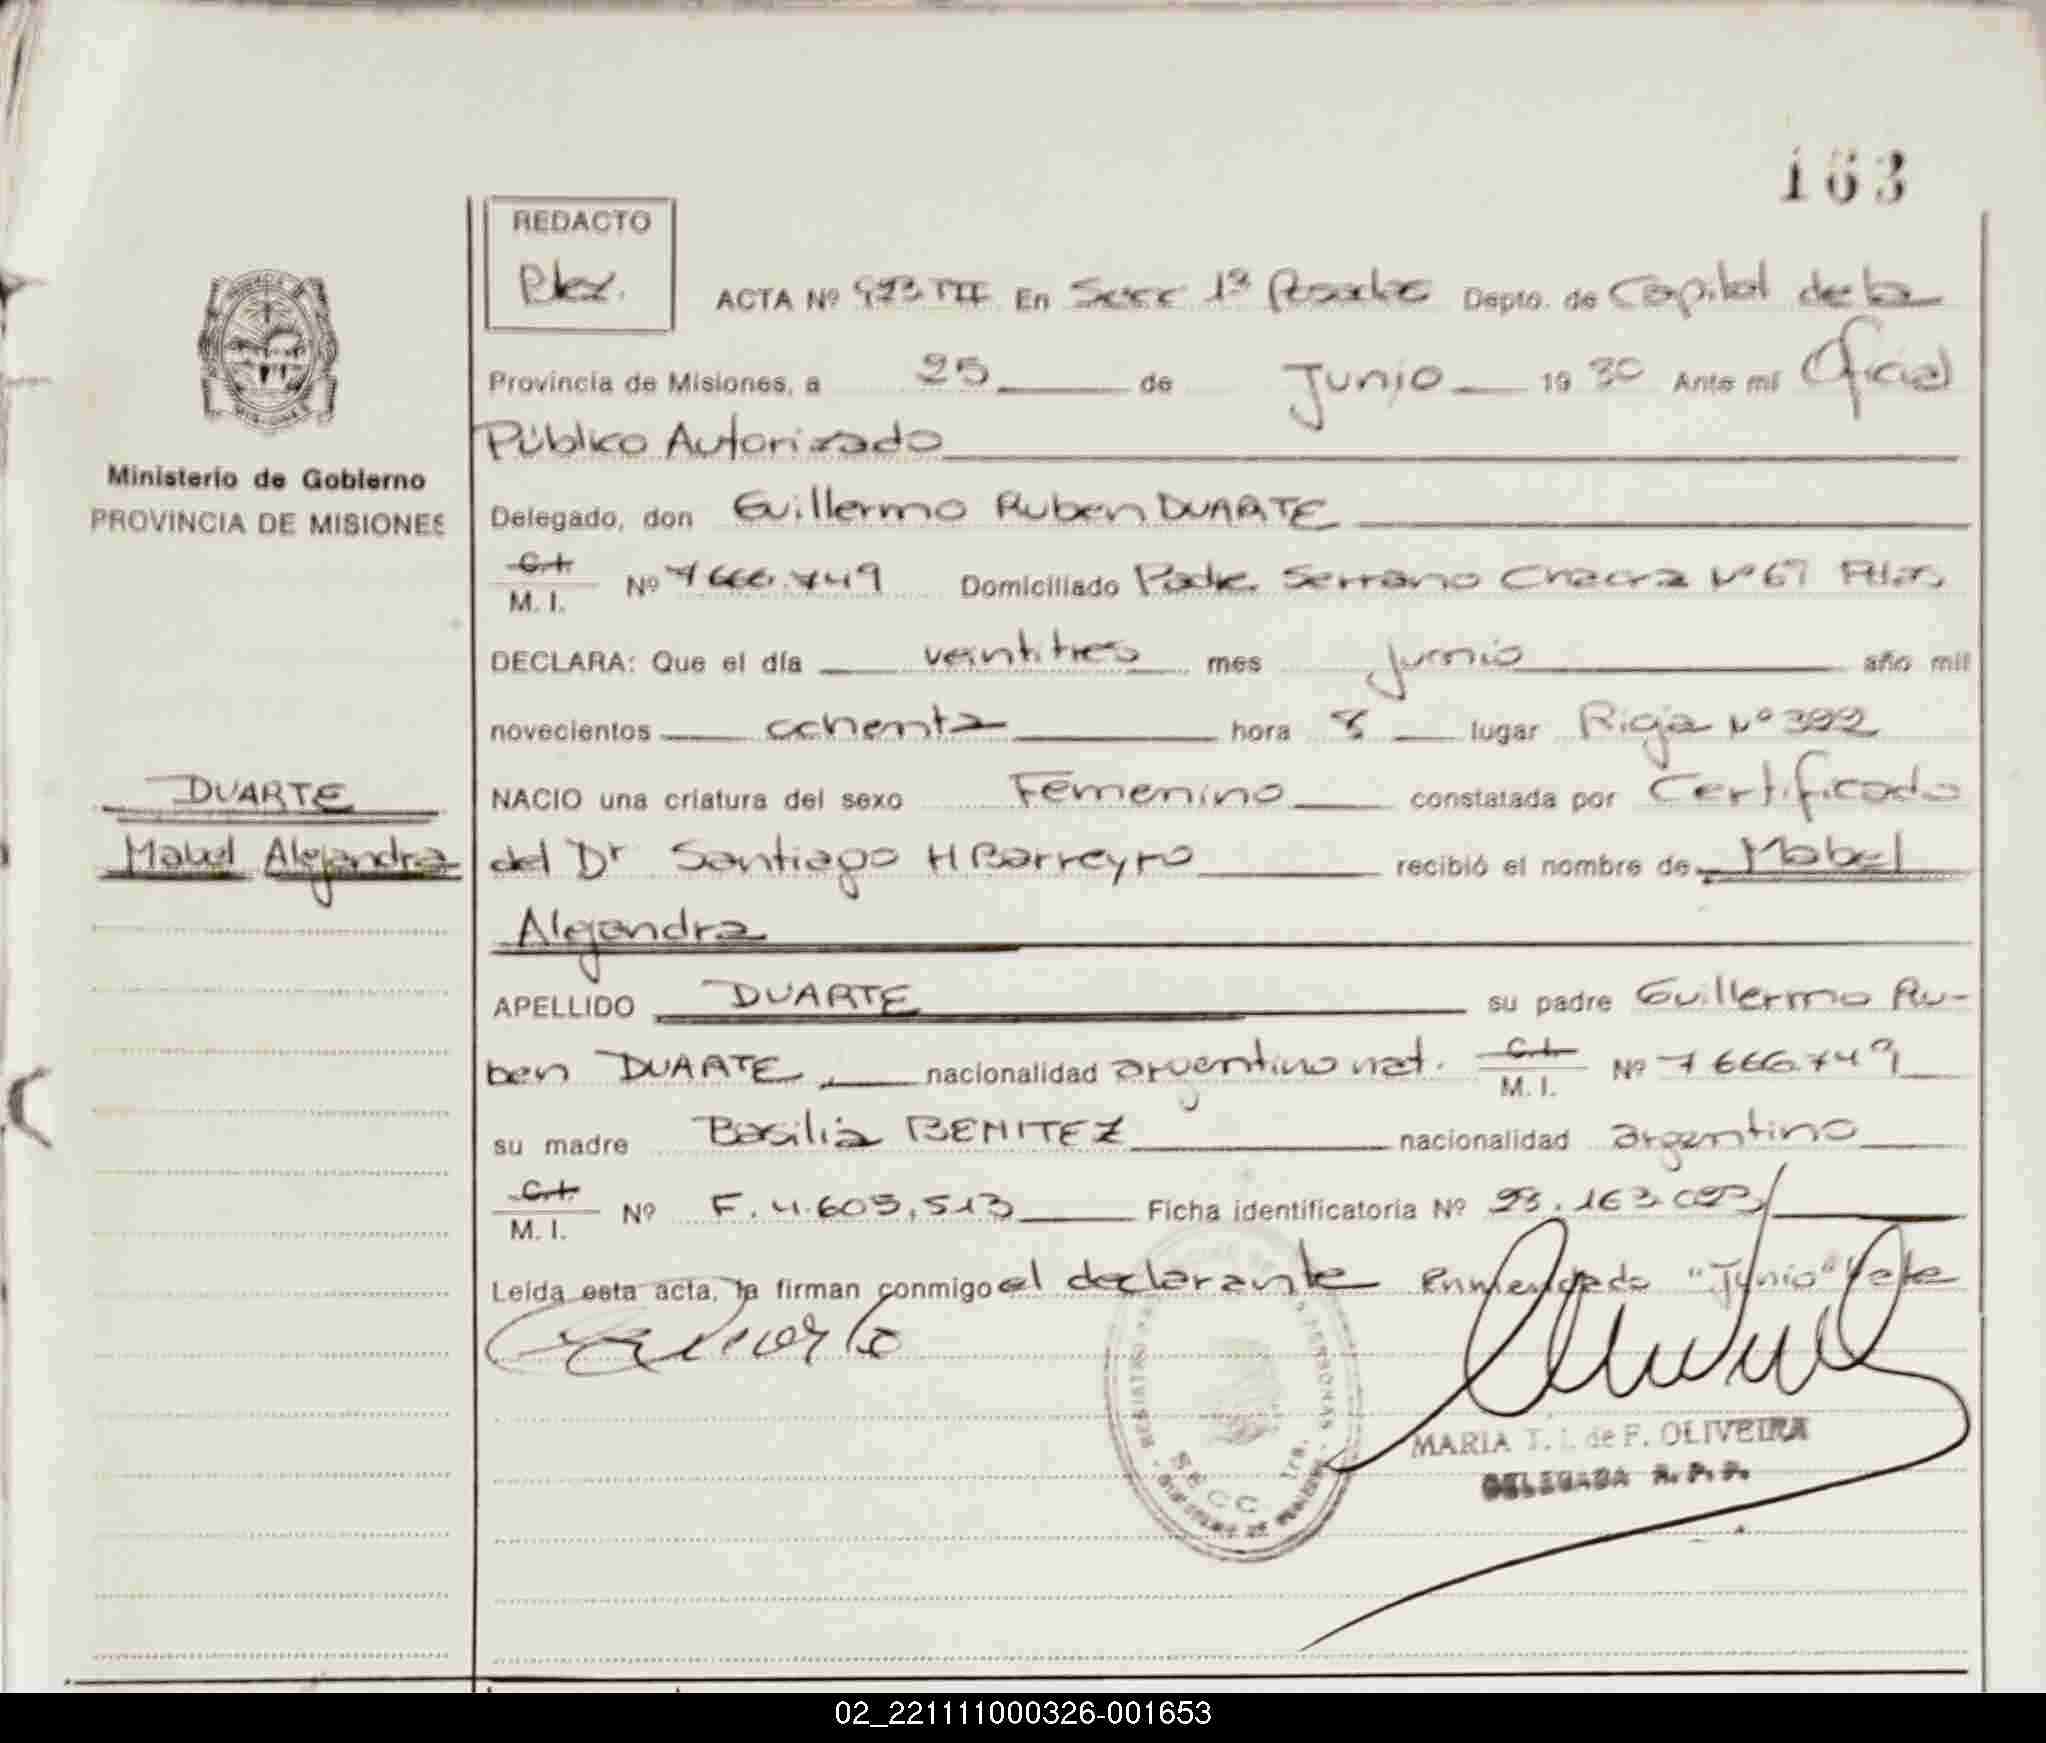 163
REDACTO
ACTA Nº TII En Secc 1ª Posadas Depto. de Capital de la
Provincia de Misiones, a 25 de Junio 19 80 Ante mí Oficial
Público Autorizado
Delegado, don Guillermo Ruben DUARTE
C.I. M. I. Nº 7666.749 Domiciliado Padre Serrano Chacra Nº 67 Pdas,
DECLARA: Que el día veintitres mes junio año mil
novecientos ochenta hora 8 lugar Rioja Nº 392
NACIO una criatura del sexo Femenino constatada por Certificado
del Dr Santiago H Barreyro recibió el nombre de Mabel
Alejandra
APELLIDO DUARTE su padre Guillermo Ru-
ben DUARTE, nacionalidad argentino nat. C.I. M. I. Nº 7666.749
su madre Basilia BENITEZ nacionalidad argentino
C.I. M. I. Nº F. 4.605.513 Ficha identificatoria Nº 28.163.023
Leída esta acta, la firman conmigo el declarante Enmendado "Junio" Vale
MARIA T. I. de F. OLIVEIRA
DELEGADA R. P. P.
SECC 1ra.
Ministerio de Gobierno
PROVINCIA DE MISIONES
DUARTE
Mabel Alejandra
02_221111000326-001653